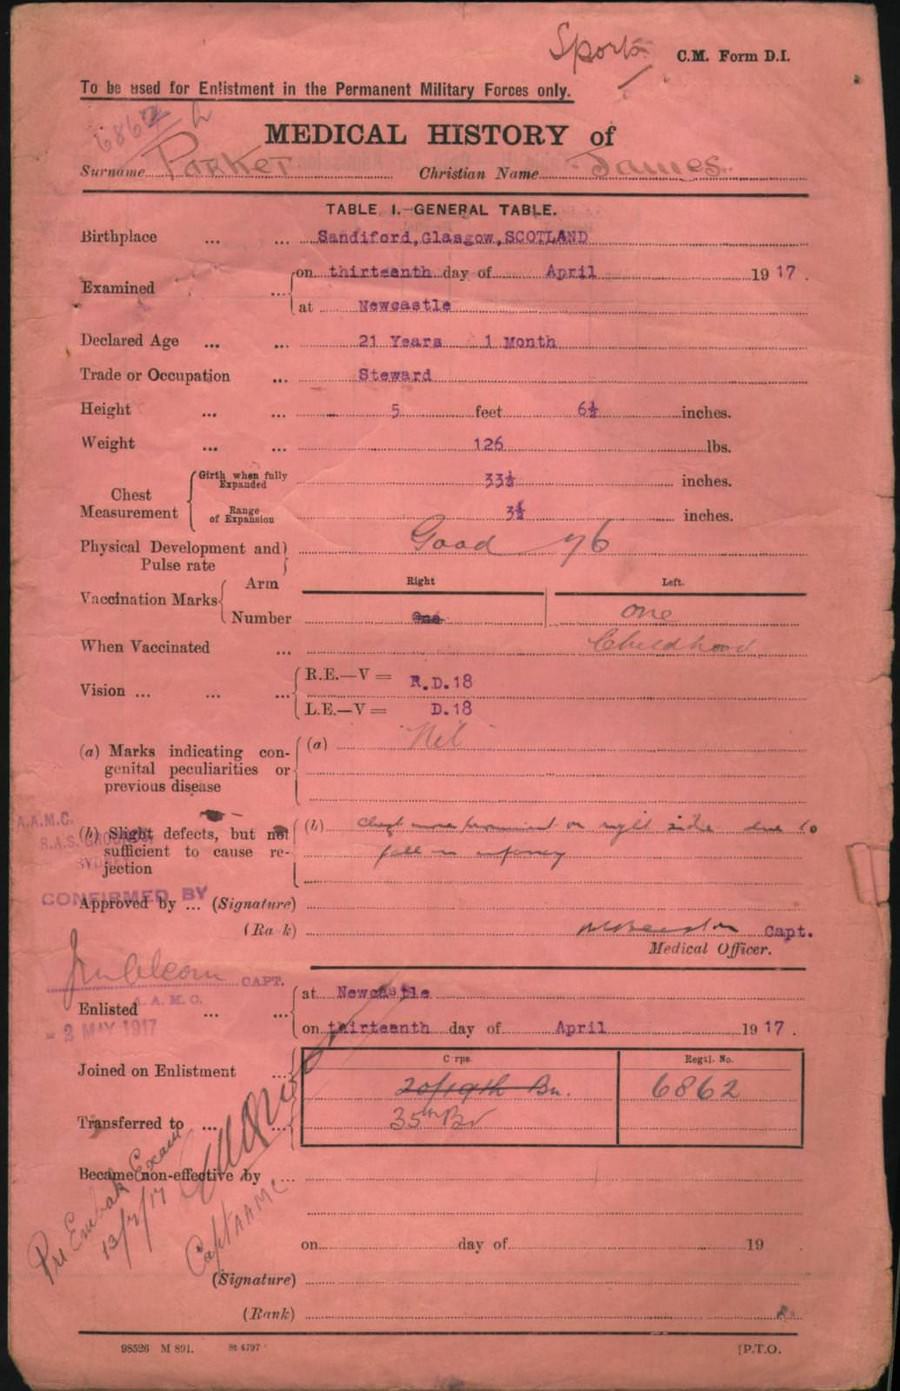 Sports
C.M. Form D.I.
To be used for Enlistment in the Permanent Military Forces only.
6862
MEDICAL HISTORY of
Surname Parker Christian Name James
TABLE I.—GENERAL TABLE.
Birthplace ... ... Sandiford, Glasgow, SCOTLAND
Examined ... on thirteenth day of April 1917.
at Newcastle
Declared Age ... ... 21 Years 1 Month
Trade or Occupation ... Steward
Height ... ... 5 feet 6½ inches.
Weight ... ... 126 lbs.
Chest Measurement Girth when fully Expanded 33½ inches.
Range of Expansion 3½ inches.
Physical Development and Pulse rate Good 76
Vaccination Marks Arm Right Left.
Number One one
When Vaccinated ... Childhood
Vision ... ... ... R.E.—V = R.D.18
L.E.—V = D.18
(a) Marks indicating con- (a) Nil
genital peculiarities or
previous disease
A.A.M.C.
(b) Slight defects, but not (b) Chest more prominent on right side due to
R.A.S.
sufficient to cause re- fall in infancy
jection
CONFIRMED BY
Approved by ... (Signature)
(Rank) Capt.
Medical Officer.
CAPT.
A.A.M.C.
Enlisted ... ... at Newcastle
- 2 MAY 1917
on thirteenth day of April 1917.
Corps. Regtl. No.
Joined on Enlistment ... 20/19th Bn. 6862
Transferred to ... ... 35th Bn
Pre Embark Exam
13/7/17
Capt AAMC
Became non-effective by ...
on day of 19
(Signature)
(Rank)
98526 M 891. St 4797
[P.T.O.